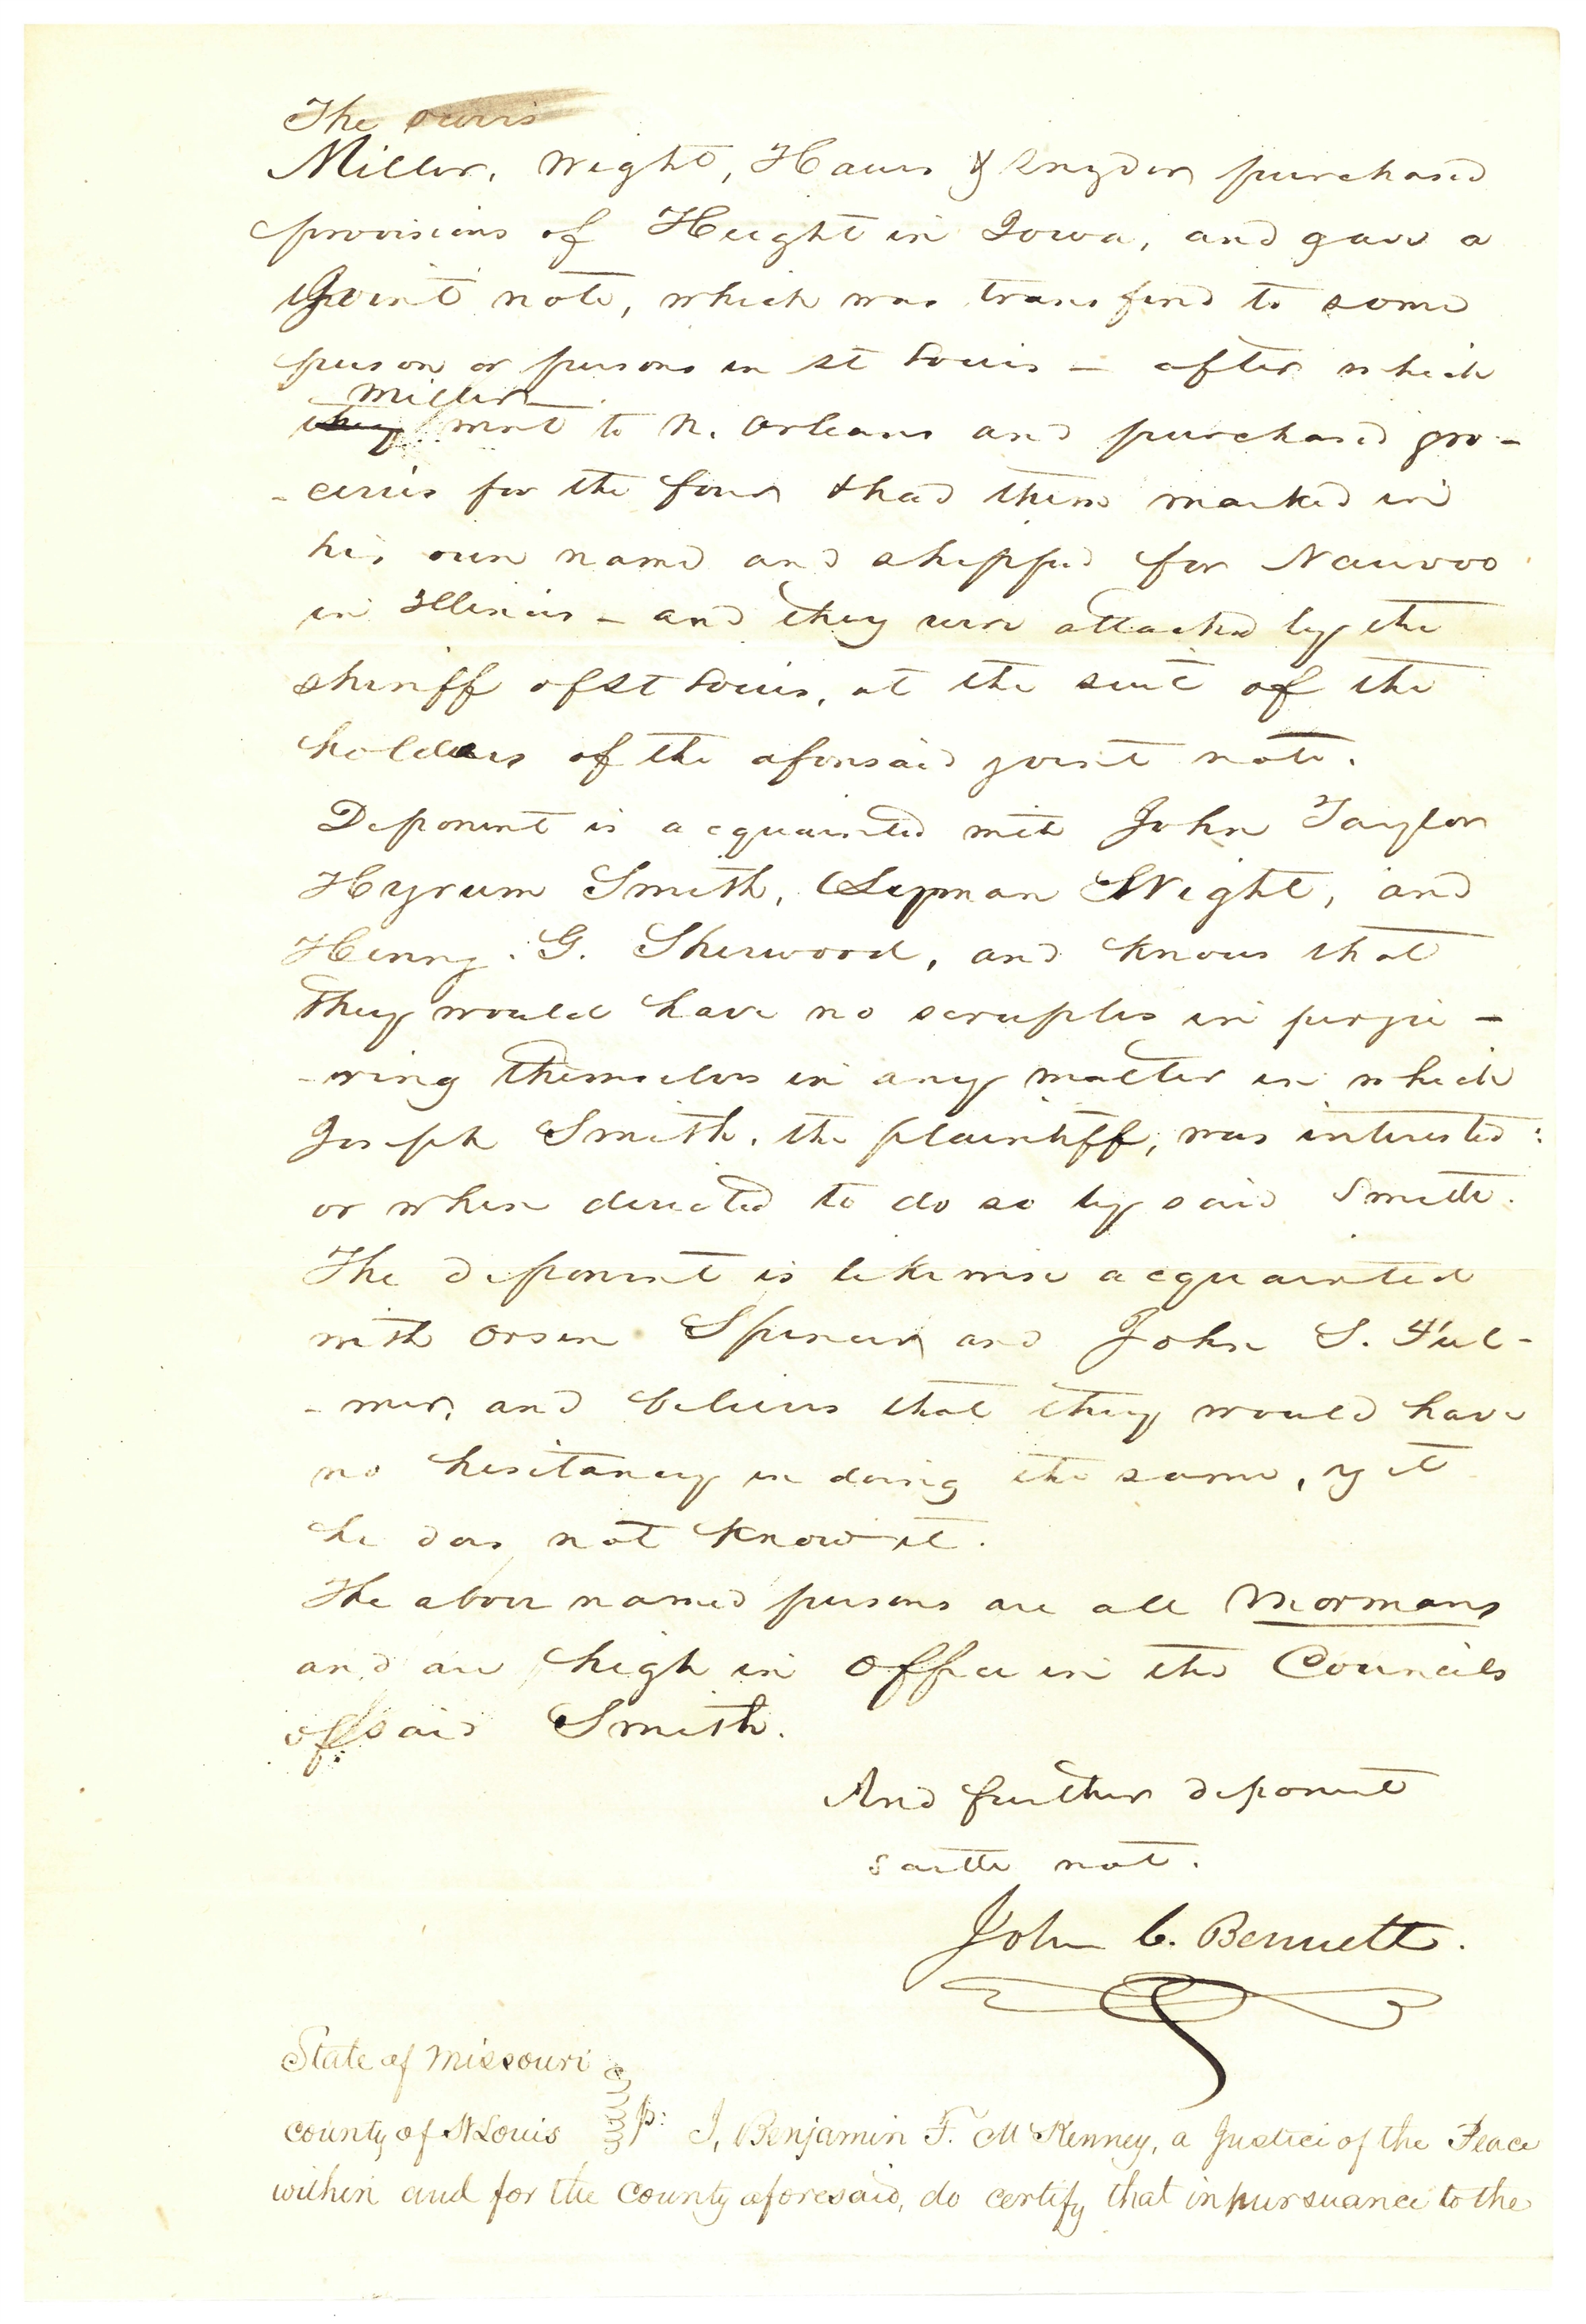 The
Miller, Wight, Haws & Snyder purchased
provisions of Height in Iowa, and gave a
Joint note, which was transfered to some
person or persons in St Louis – after which
Miller
they went to N. Orleans and purchased gro-
-ceries for the four & had them marked in
his own name and shipped for Nauvoo
in Illinois – and they were attached by the
sheriff of St Louis, at the suit of the
holders of the aforesaid joint note.
Deponent is acquainted with John Taylor
Hyrum Smith, Lyman Wight, and
Henry G. Sherwood, and knows that
they would have no scruples in perju-
-ring themselves in any matter in which
Joseph Smith, the plaintiff, was interested:
or when directed to do so by said Smith.
The deponent is likewise acquainted
with Orson Spencer and John S. Ful-
-mer, and believes that they would have
no hesitancy in doing the same, yet
he does not know it.
The above named persons are all Mormans
and are high in office in the Councils
of said Smith.
And further deponent
saith not.
John C. Bennett.
State of Missouri
county of St Louis I, Benjamin F. McKenney, a Justice of the Peace
within and for the county aforesaid, do certify that in pursuance to the